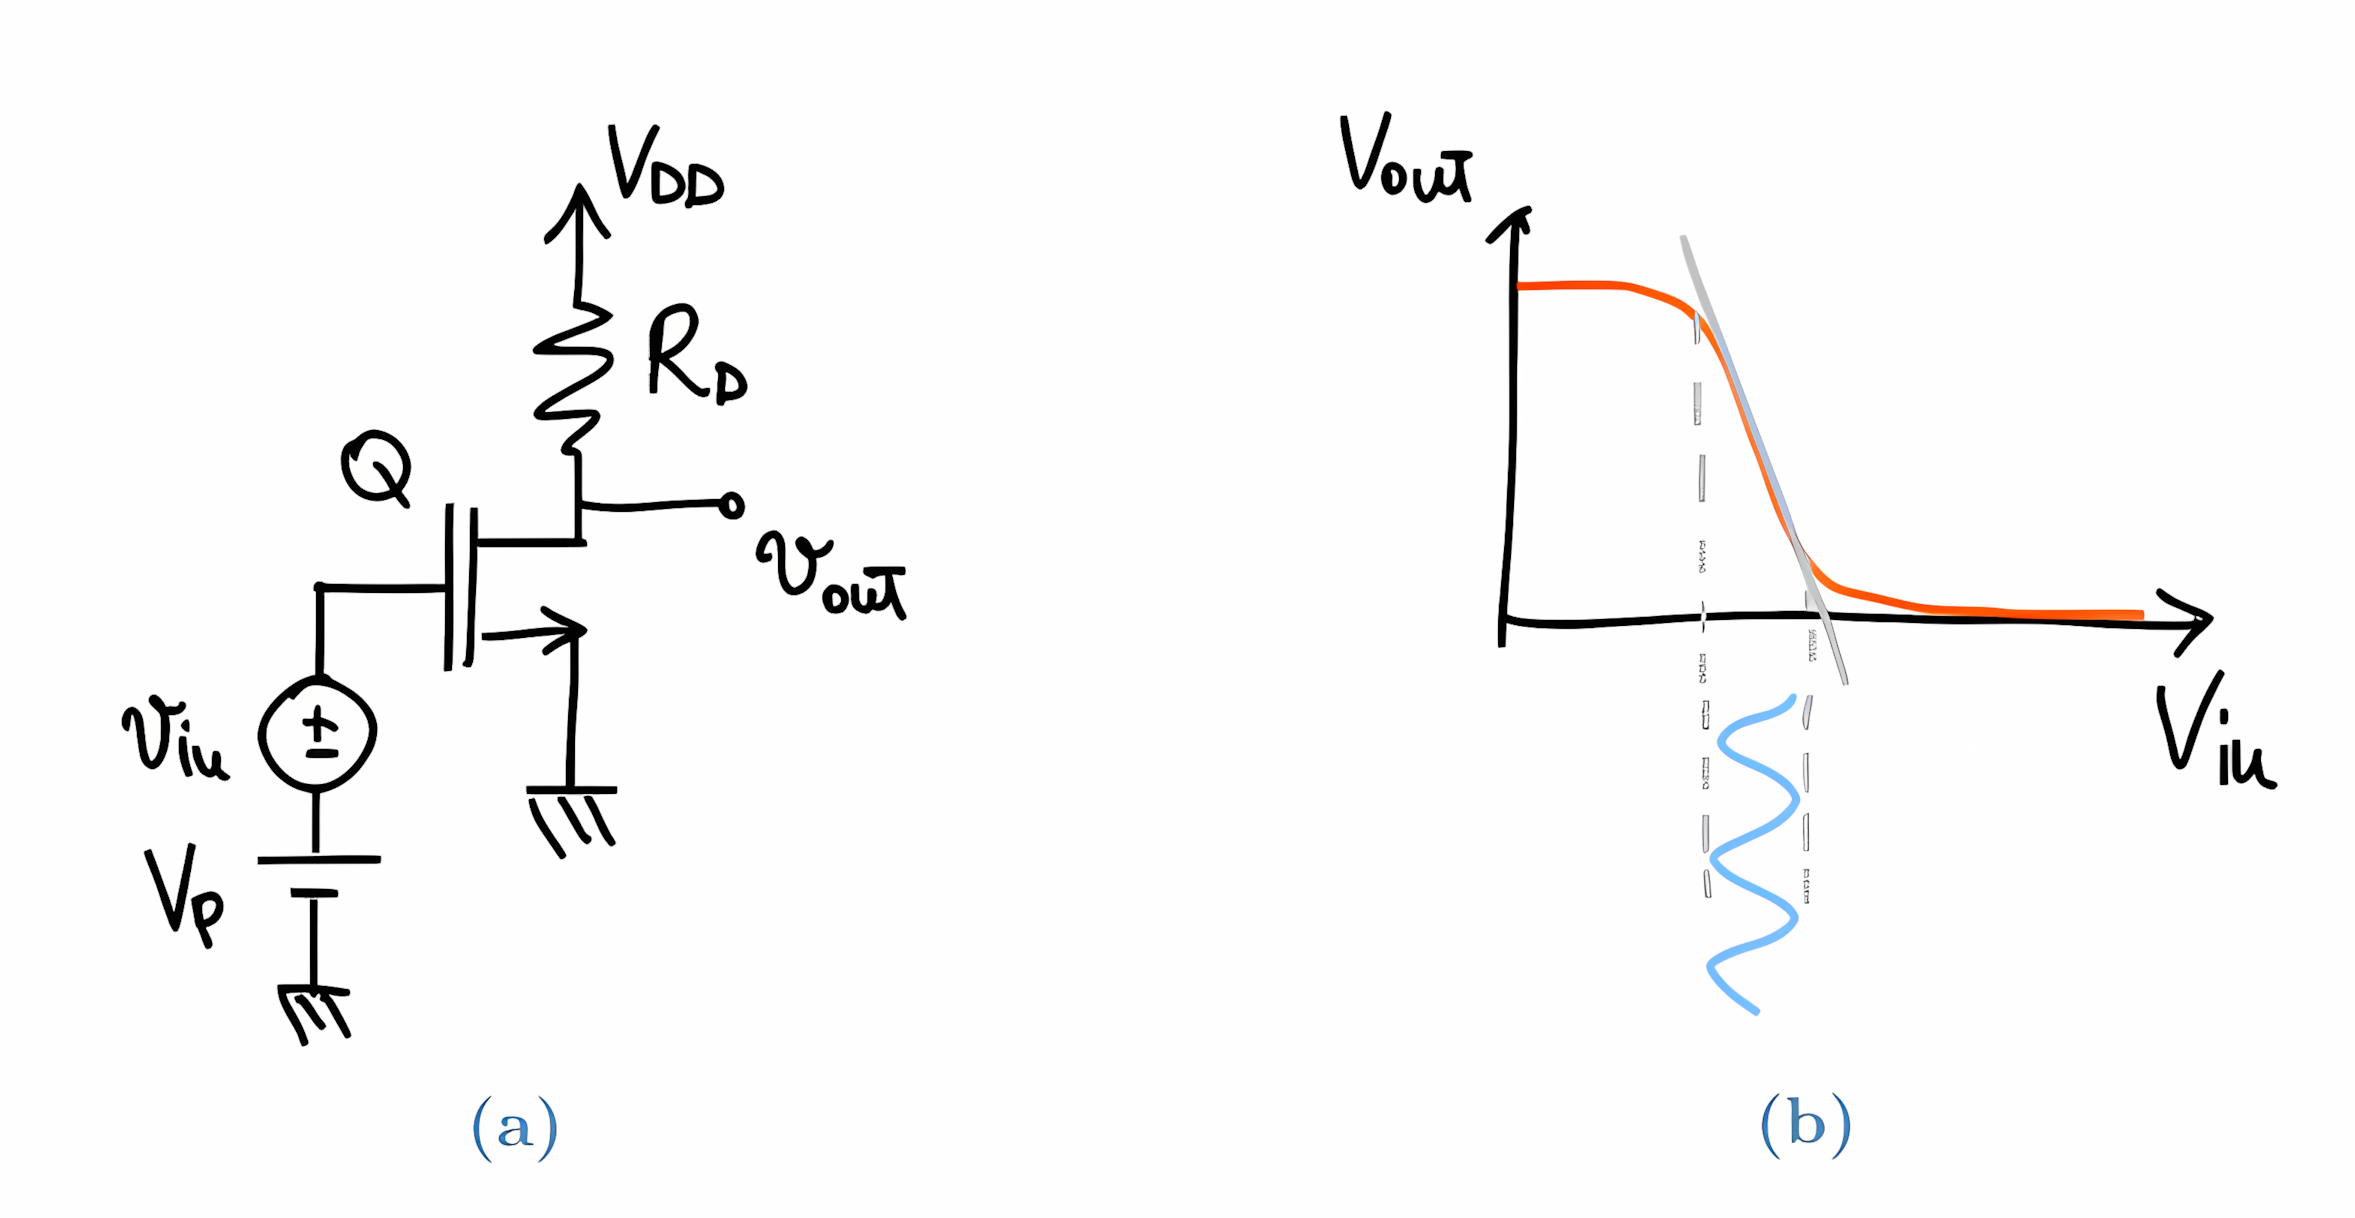 VDD
RD
Q
vout
vin
Vp
(a)
Vout
Vin
(b)